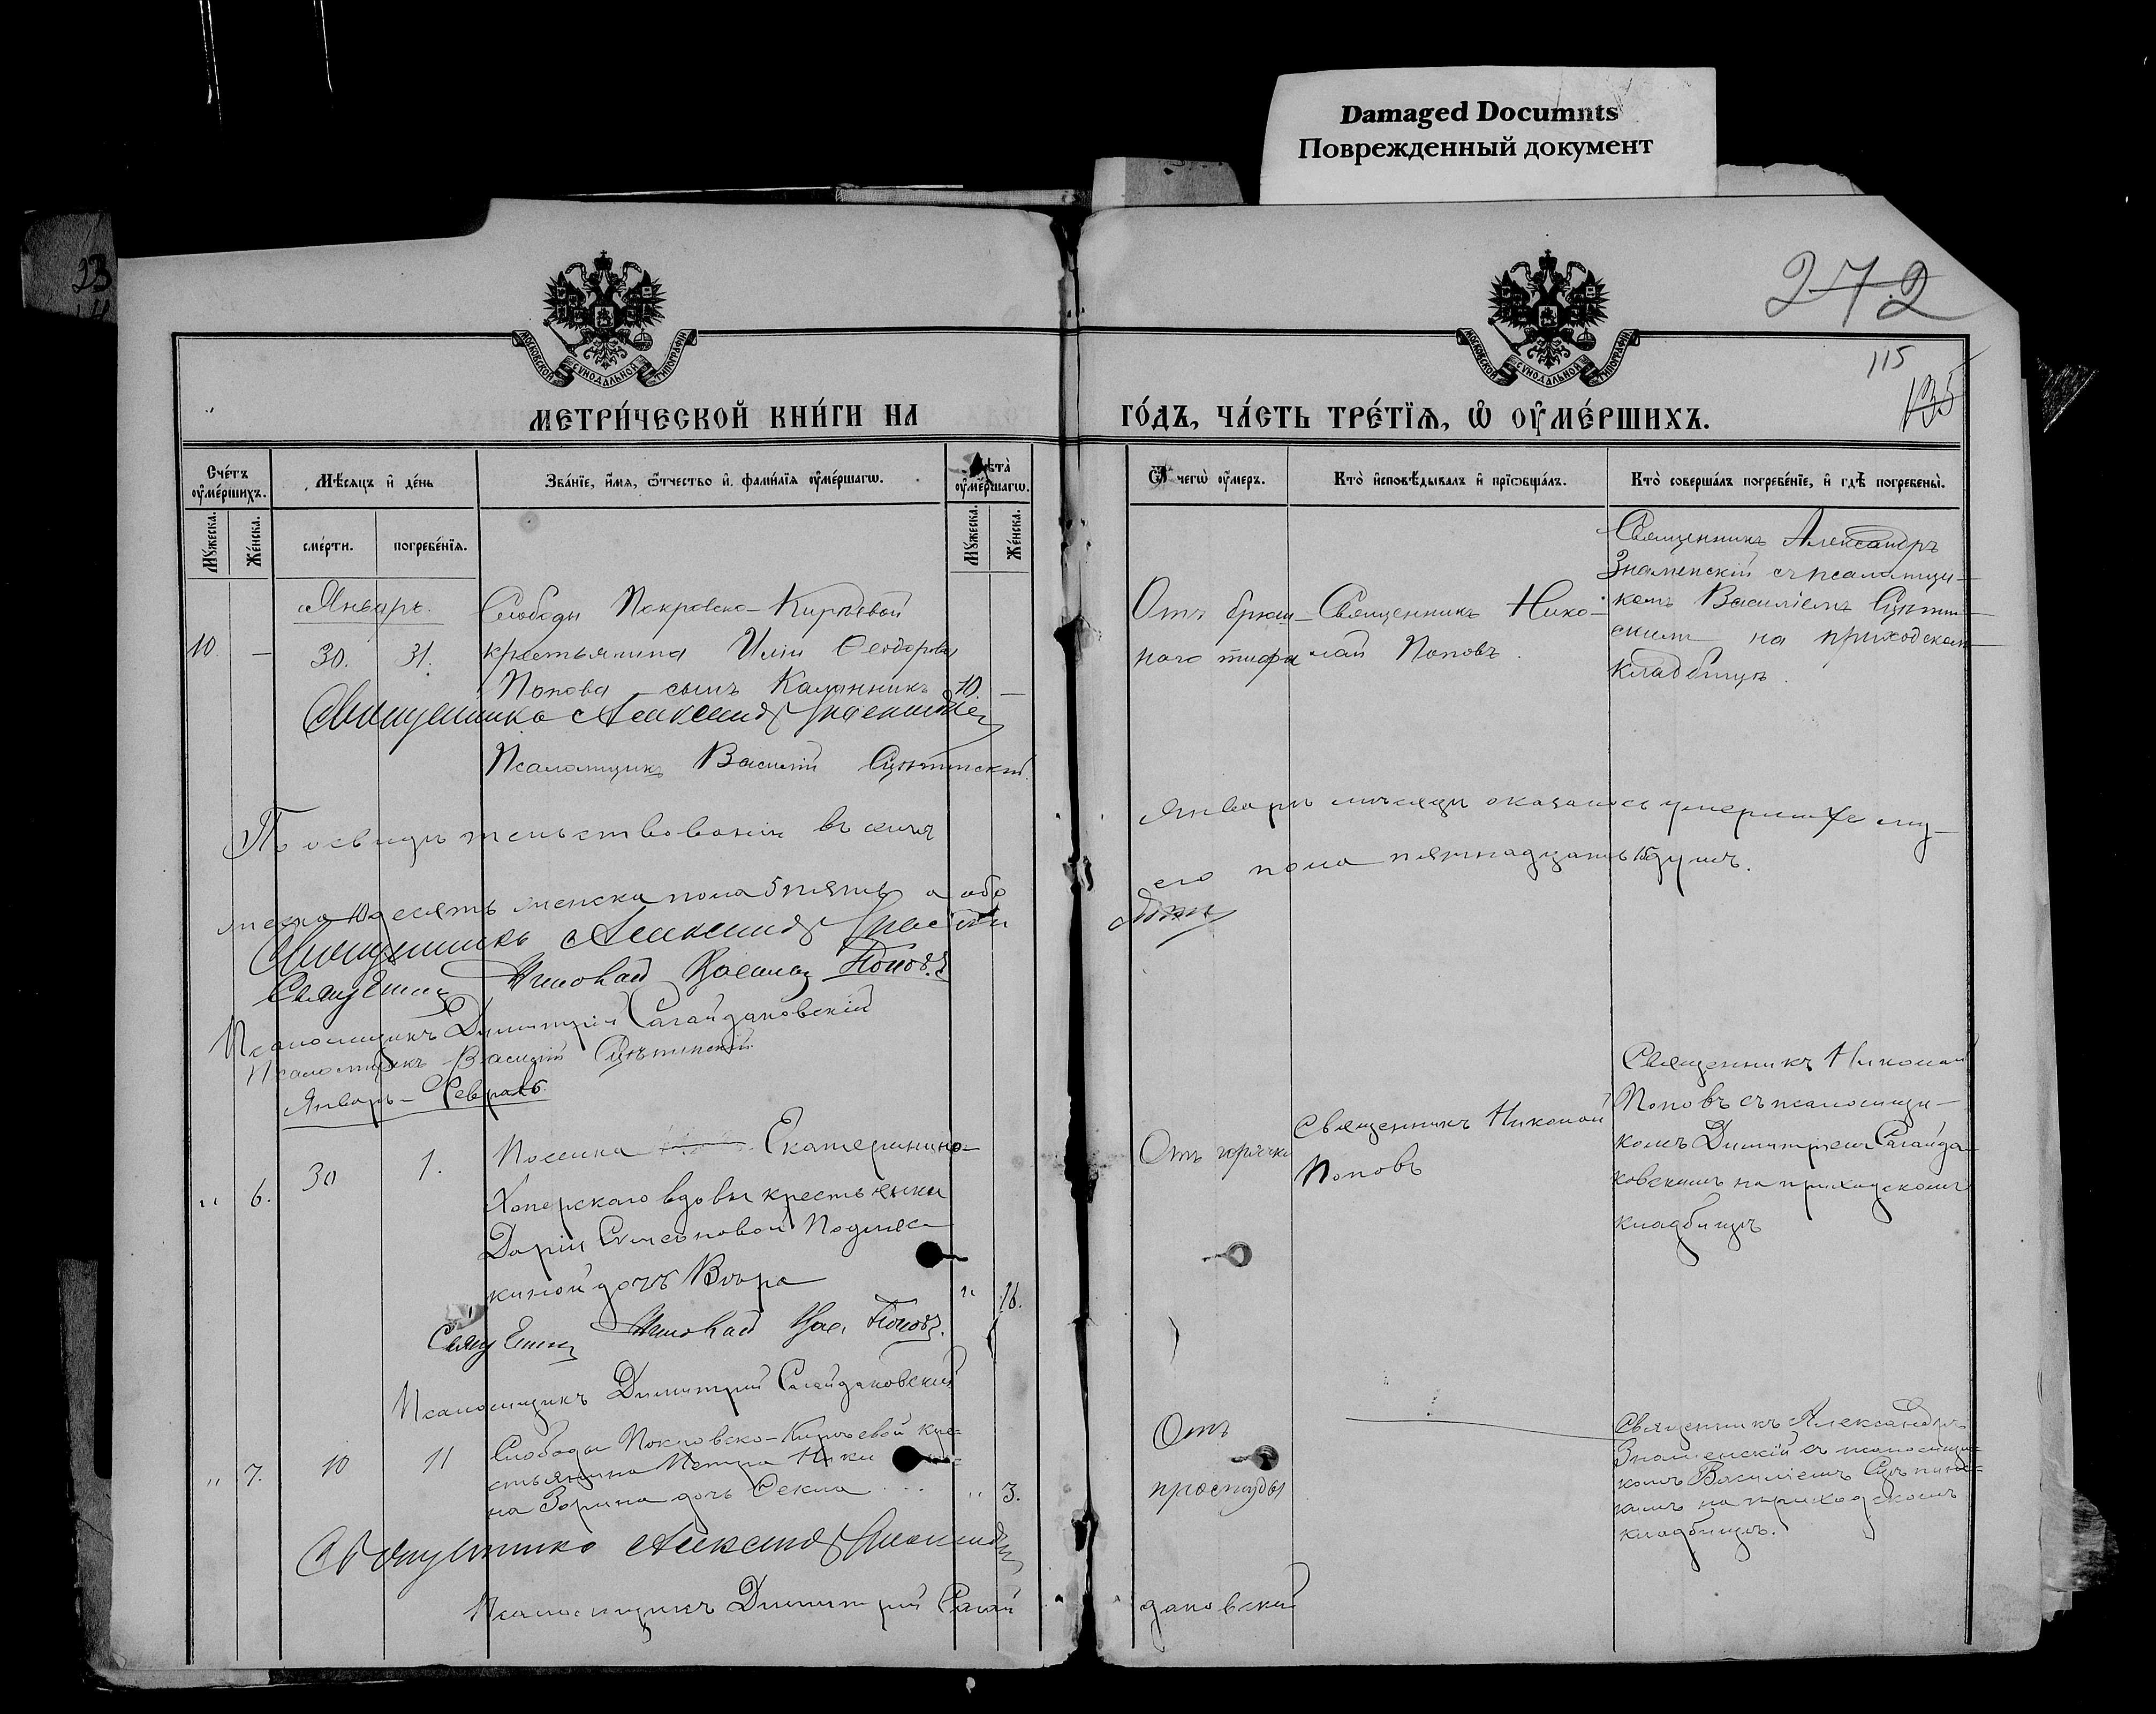 Damaged Documnts
Поврежденный документ
23
272
115
135
МОСКОВСКОЙ СѴНОДАЛЬНОЙ ТИПОГРАФІИ
МОСКОВСКОЙ СѴНОДАЛЬНОЙ ТИПОГРАФІИ
МЕТРИ́ЧЕСКОЙ КНИ́ГИ НА ГО́ДЪ, ЧА́СТЬ ТРЕ́ТЇѦ, Ѡ҆ ОУ҆МЕ́РШИХЪ.
Сче́тъ оу҆ме́ршихъ.
Мѣ́сѧцъ и҆ де́нь
Зва́нїе, и҆́мѧ, ѻ҆́тчество и҆ фами́лїѧ оу҆ме́ршагѡ.
Лѣта̀ оу҆ме́ршагѡ.
Ѿ чегѡ̀ оу҆́меръ.
Кто̀ и҆сповѣ́дывалъ и҆ прїѡбща́лъ.
Кто̀ соверша́лъ погребе́нїе, и҆ гдѣ̀ погребены̀.
Му́жеска.
Же́нска.
сме́рти.
погребе́нїѧ.
Му́жеска.
Же́нска.
Январь.
10. — 30. 31.
Слободы Покровско-Киреевой
крестьянина Иліи Ѳеодорова
Попова сынъ Калинникъ 10. —
Отъ брюш-
наго тифа
Священникъ Нико-
лай Поповъ.
Священникъ Александръ
Знаменскій съ псаломщи-
комъ Василіемъ
на приходскомъ
кладбищѣ.
Священникъ Александръ Знаменскій
Псаломщикъ Василій
По освидѣтельствованіи въ семъ Январѣ мѣсяцѣ оказалось умершихъ му-
жеска 10 десять женска пола 5 пять а обо его пола пятнадцать 15 душъ.
Священникъ Александръ
Священникъ Николай Поповъ
Псаломщикъ Димитрій Сагайдаковскій
Псаломщикъ Василій
Январь - Февраль
" 6. 30 1.
Поселка Екатеринино-
Хоперскаго вдовы крестьянки
Даріи Симеоновой Подмяс-
киной дочь Вѣра " 16.
Отъ горячки
Священникъ Николай
Поповъ
Священникъ Николай
Поповъ съ псаломщи-
комъ Димитріемъ Сагайда-
ковскимъ на приходскомъ
кладбищѣ
Священникъ Николай Поповъ.
Псаломщикъ Димитрій Сагайдаковскій
" 7. 10 11
Слободы Покровско-Киреевой кре-
стьянина Петра
на Зорина дочь Ѳекла " 3.
Отъ
простуды
Священникъ Александръ
Знаменскій съ псаломщи-
комъ Василіемъ
на приходскомъ
кладбищѣ.
Священникъ Александръ Знаменскій
Псаломщикъ Димитрій Сагай
даковскій